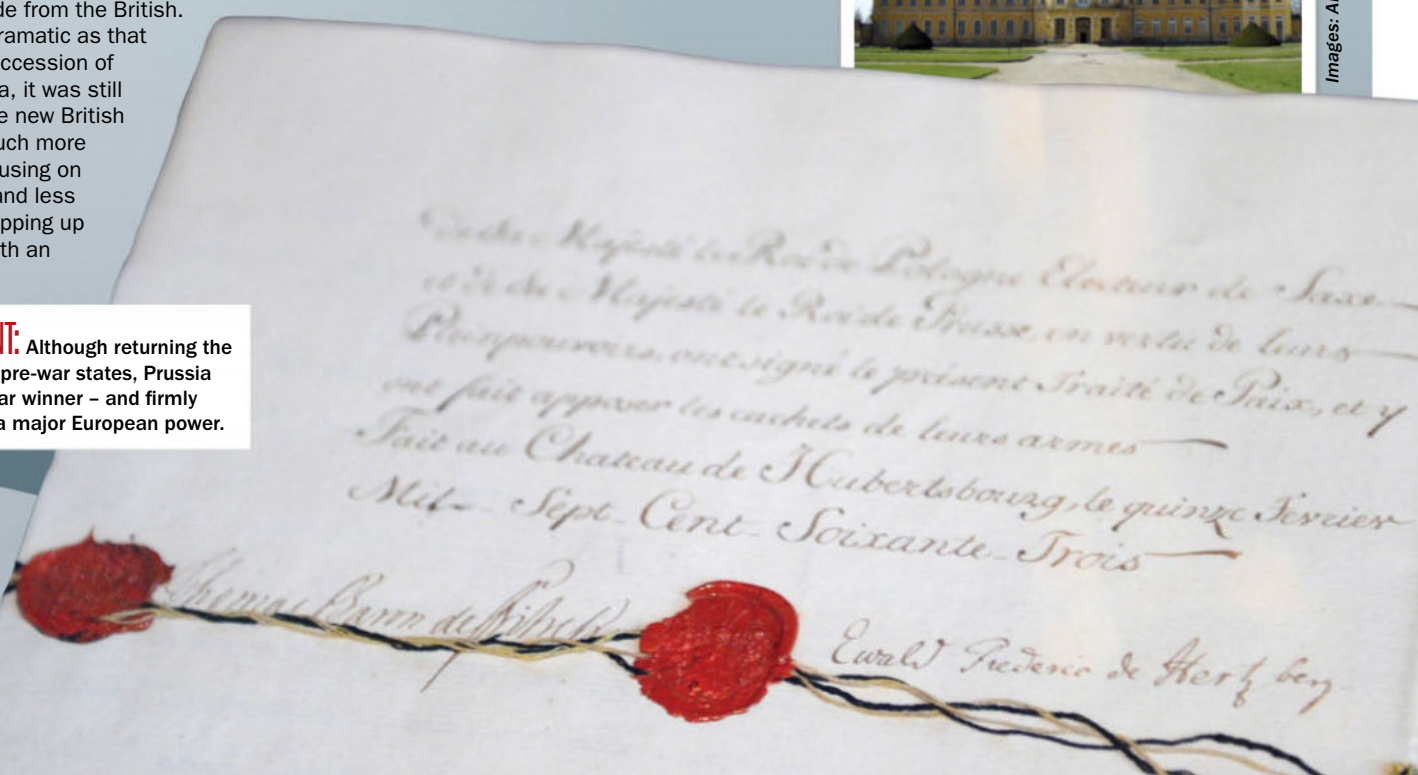 de from the British.
ramatic as that
ccession of
a, it was still
e new British
uch more
using on
and less
pping up
th an
NT: Although returning the
pre-war states, Prussia
ar winner – and firmly
a major European power.
Images: A
Majesté le Roi de Pologne Electeur de Saxe
et de Sa Majesté le Roi de Prusse, en vertu de leurs
Pleinpouvoirs, ont signé le présent Traité de Paix, et y
ont fait apposer les cachets de leurs armes
Fait au Chateau de Hubertsbourg, le quinze Fevrier
Mil Sept Cent Soixante Trois
Thomas Baron de
Ewald Frederic de Hertzberg